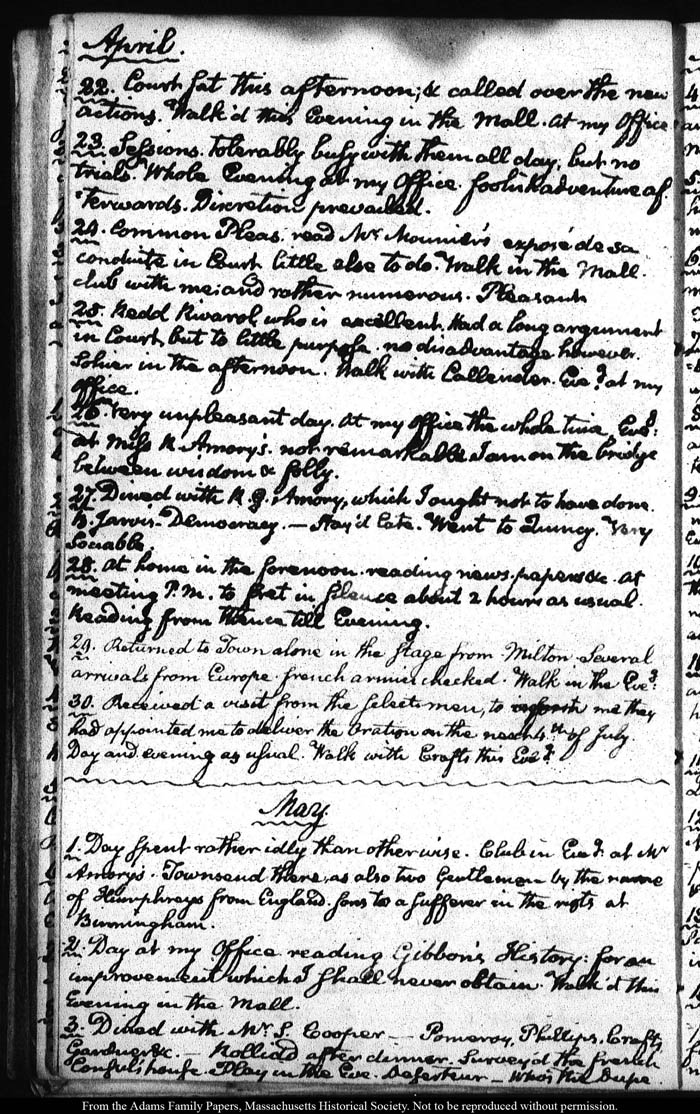 April.
22. Court sat this afternoon; & called over the new
actions. Walk'd this Evening in the Mall. At my Office
23. Sessions. tolerably busy with them all day; but no
trials. Whole Evening at my Office. foolish adventure af-
terwards. Discretion prevailed.
24. Common Pleas. read Mr. Mounier's exposé de sa
conduite in Court. little else to do. Walk in the Mall.
club with me; and rather numerous. Pleasant
25. Readd Rivarol, who is excellent. Had a long argument
in Court, but to little purpose. no disadvantage however.
Sohier in the afternoon. Walk with Callender. Eveg. at my
Office.
26. Very unpleasant day. At my Office the whole time, Eveg:
at Miss H. Amory's. not remarkable I am on the bridge
between wisdom & folly.
27. Dined with R. G. Amory, which I ought not to have done.
Jarvis. Democracy. — Stay'd late. Went to Quincy. Very
Sociable.
28. At home in the forenoon. reading news-papers &c. At
meeting P.M. to fret in silence about 2 hours as usual.
Reading from thence till Evening.
29. Returned to Town alone in the stage from Milton. Several
arrivals from Europe. french armies checked. Walk in the Eveg:
30. Received a visit from the select-men, to me they
had appointed me to deliver the Oration on the next 4th of July.
Day and evening as usual. Walk with Crafts this Eveg.
May.
1. Day spent rather idly than otherwise. Club in Eveg. at Mr
Amory's. Townsend there, as also two Gentlemen by the name
of Humphreys from England. sons to a sufferer in the riots at
Birmingham.
2. Day at my Office reading Gibbon's History: for an
improvement which I shall never obtain. Walk'd this
Evening in the Mall.
3. Dined with Mr. S. Cooper — Pomeroy, Phillips, Crafts,
Gardner &c. — Rollid after dinner. Survey'd the french
Consulshouse. Play in the Eve. Deserteur — Who's the Dupe
From the Adams Family Papers, Massachusetts Historical Society. Not to be reproduced without permission.